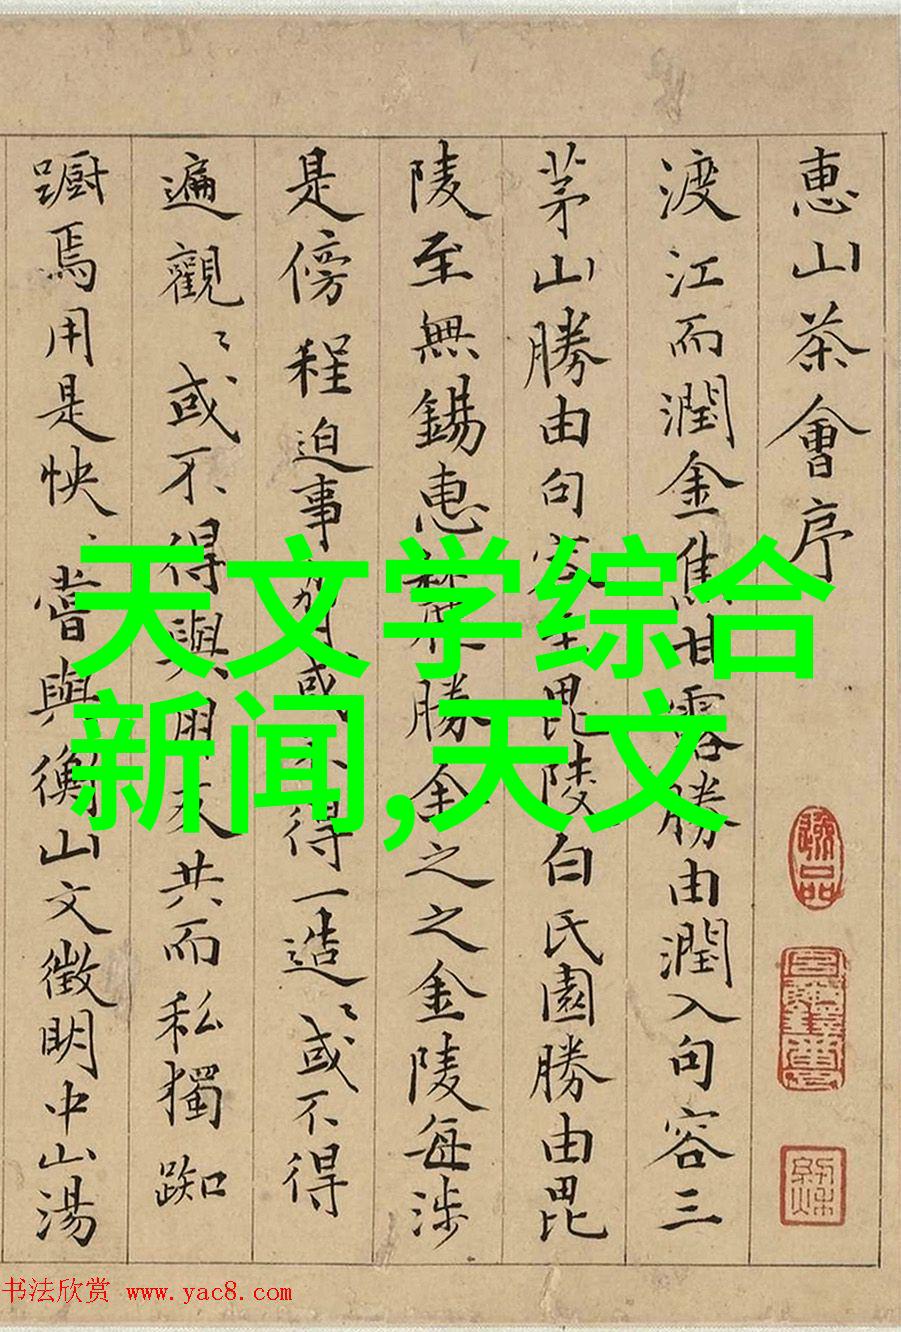 惠山茶會序
渡江而潤金焦甘露勝由潤入句容三
茅山勝由句容至毘陵白氏園勝由毘
陵至無錫惠勝全之之金陵每涉
是傍程迫事或不得一造〻或不得
遍觀〻或不得與朋友共而私獨踟
蹰焉用是怏〻嘗與衡山文徵明中山湯
天文学综合
新闻,天文
书法欣赏 www.yac8.com